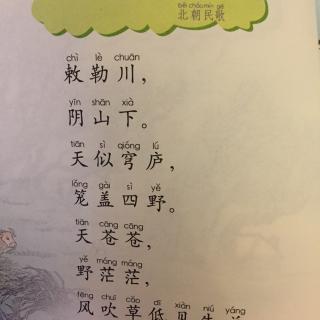 běi cháo mín gē
北朝民歌
chì lè chuān
敕勒川，
yīn shān xià
阴山下。
tiān sì qióng lú
天似穹庐，
lǒng gài sì yě
笼盖四野。
tiān cāng cāng
天苍苍，
yě máng máng
野茫茫，
fēng chuī cǎo dī xiàn niú yáng
风吹草低见牛羊